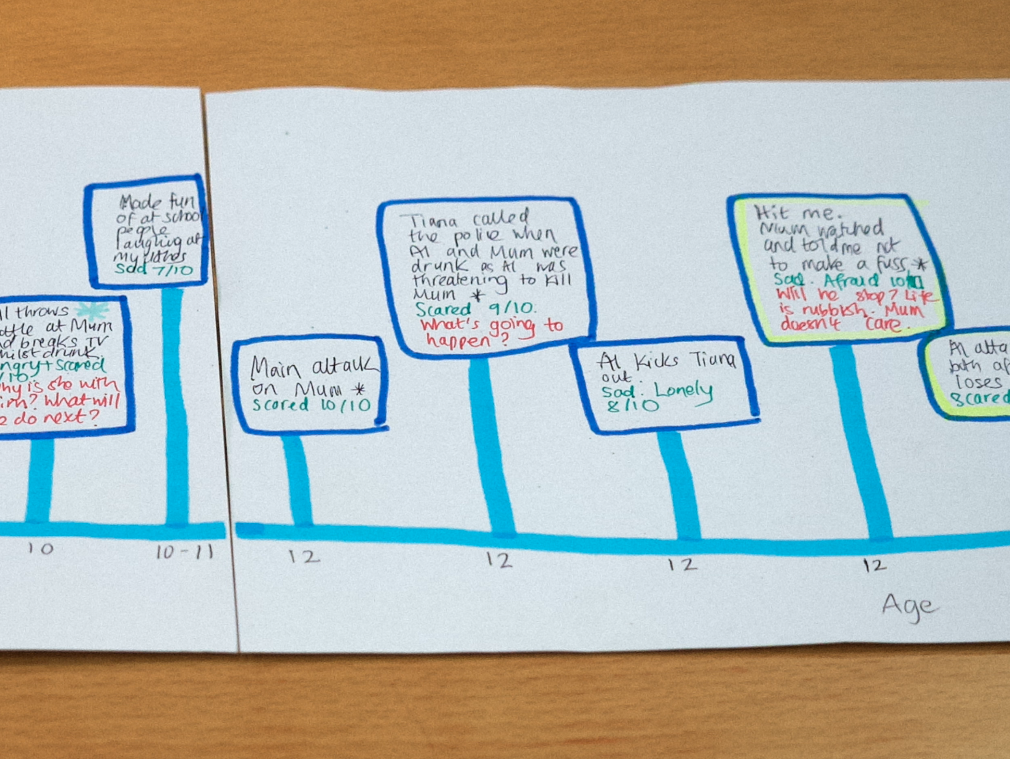 Made fun
of at school
people
laughing at
my clothes
Sad 7/10
throws
at Mum
breaks TV
whilst drunk
Angry + Scared
/10
Why is she with
him? What will
he do next?
Main attack
on Mum *
Scared 10/10
Tiana called
the police when
Al and Mum were
drunk as Al was
threatening to kill
Mum *
Scared 9/10.
What's going to
happen?
Al kicks Tiana
out.
Sad. Lonely
8/10
Hit me.
Mum watched
and told me not
to make a fuss *
Sad. Afraid 10
Will he stop? Life
is rubbish. Mum
doesn't care.
Al
both
loses
Scared
10
10-11
12
12
12
12
Age